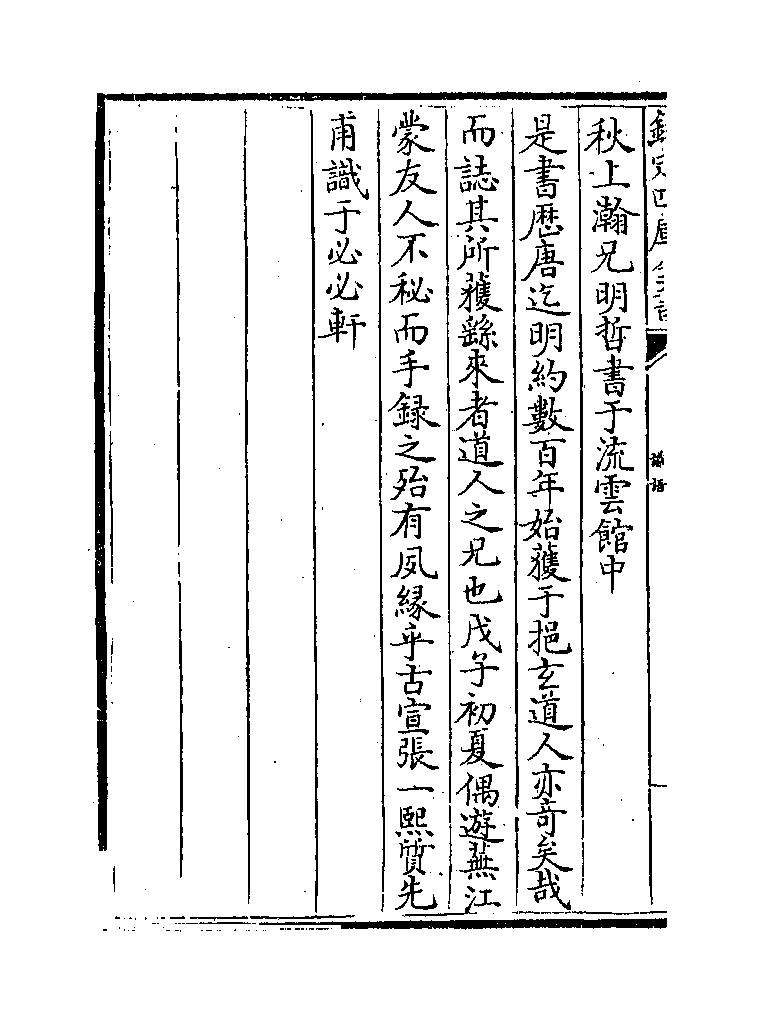 欽定四庫全書
識語
秋上瀚兄明哲書于流雲館中
是書歴唐迄明約數百年始獲于挹玄道人亦奇矣哉
而誌其所獲繇來者道人之兄也戊子初夏偶遊蕪江
蒙友人不秘而手録之殆有夙縁乎古宣張一熙質先
甫識于必必軒